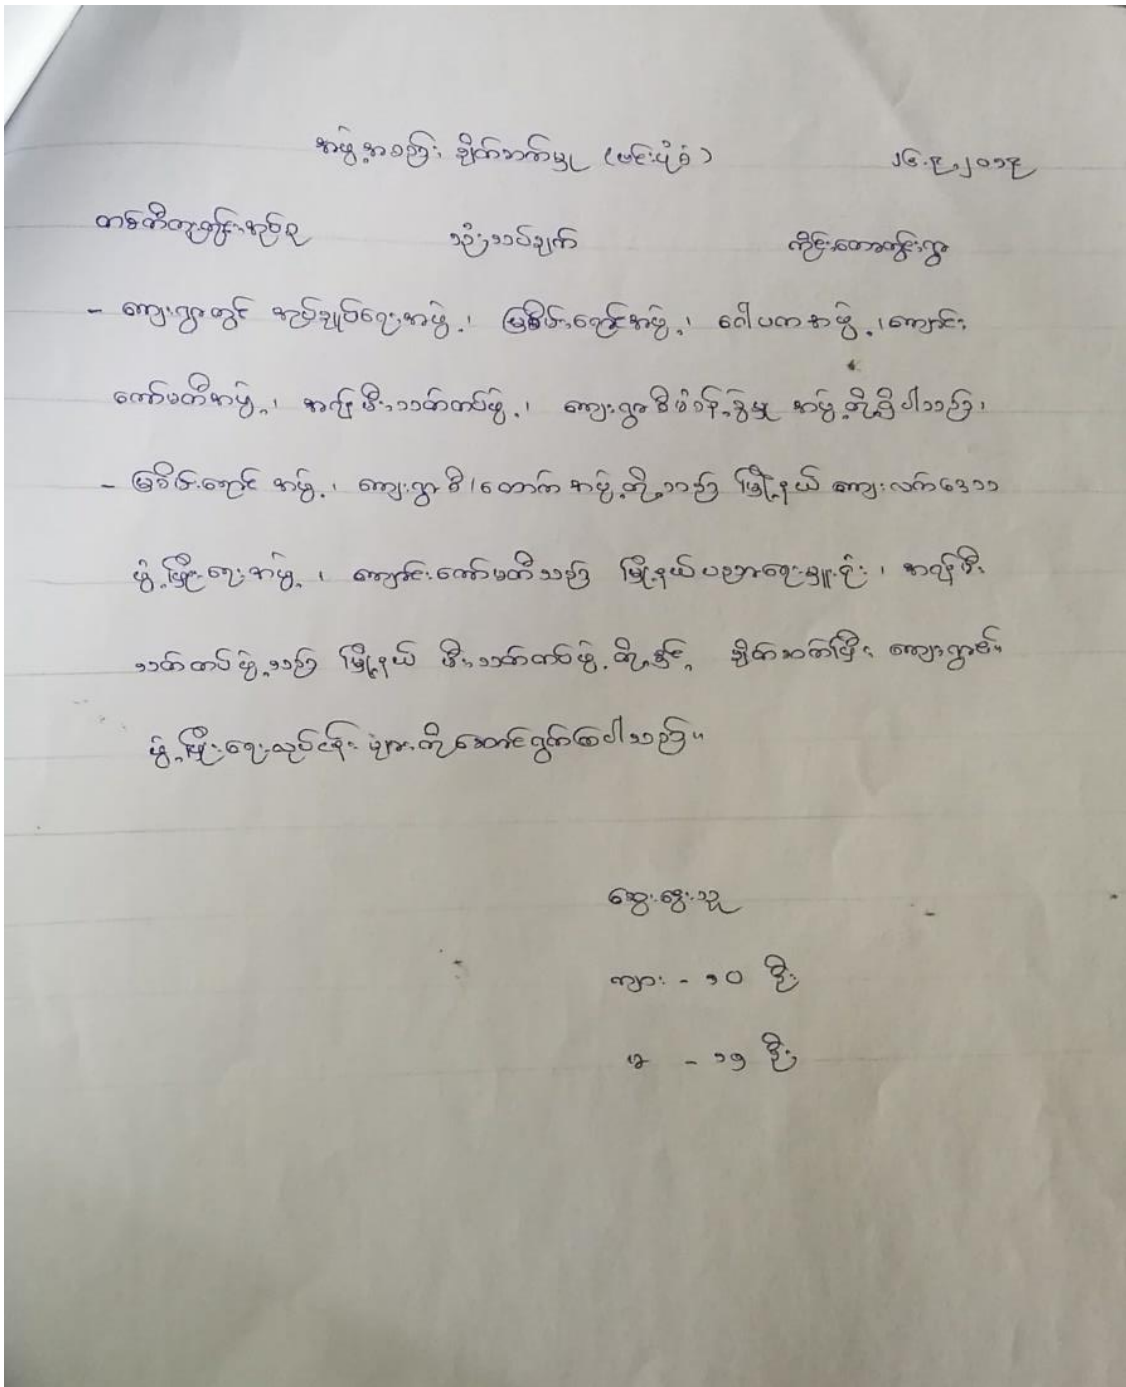 အဖွဲ့အစည်း ချိတ်ဆက်မှု (ဗင်းပုံစံ) ၂၆.၉.၂၀၁၉
တစ်တီတူးတွင်းအုပ်စု သုံးသပ်ချက် ကိုင်းတောတွင်းရွာ
- ကျေးရွာတွင် အုပ်ချုပ်ရေးအဖွဲ့၊ မြစိမ်းရောင်အဖွဲ့၊ ဂေါပကအဖွဲ့၊ ကျောင်း
ကော်မတီအဖွဲ့၊ အရန်မီးသတ်တပ်ဖွဲ့၊ ကျေးရွာစီမံခန့်ခွဲမှု အဖွဲ့တို့ရှိပါသည်၊
- မြစိမ်းရောင် အဖွဲ့၊ ကျေးရွာစီ/ထောက်အဖွဲ့တို့သည် မြို့နယ် ကျေးလက်ဒေသ
ဖွံ့ဖြိုးရေးအဖွဲ့၊ ကျောင်းကော်မတီသည် မြို့နယ်ပညာရေးမှူးရုံး၊ အရန်မီး
သတ်တပ်ဖွဲ့သည် မြို့နယ် မီးသတ်တပ်ဖွဲ့တို့နှင့် ချိတ်ဆက်ပြီး ကျေးရွာ၏
ဖွံ့ဖြိုးရေးလုပ်ငန်းများကို ဆောင်ရွက်ပါသည်။
ဆွေးနွေးသူ
ကျား - ၁၀ ဦး
မ - ၁၅ ဦး